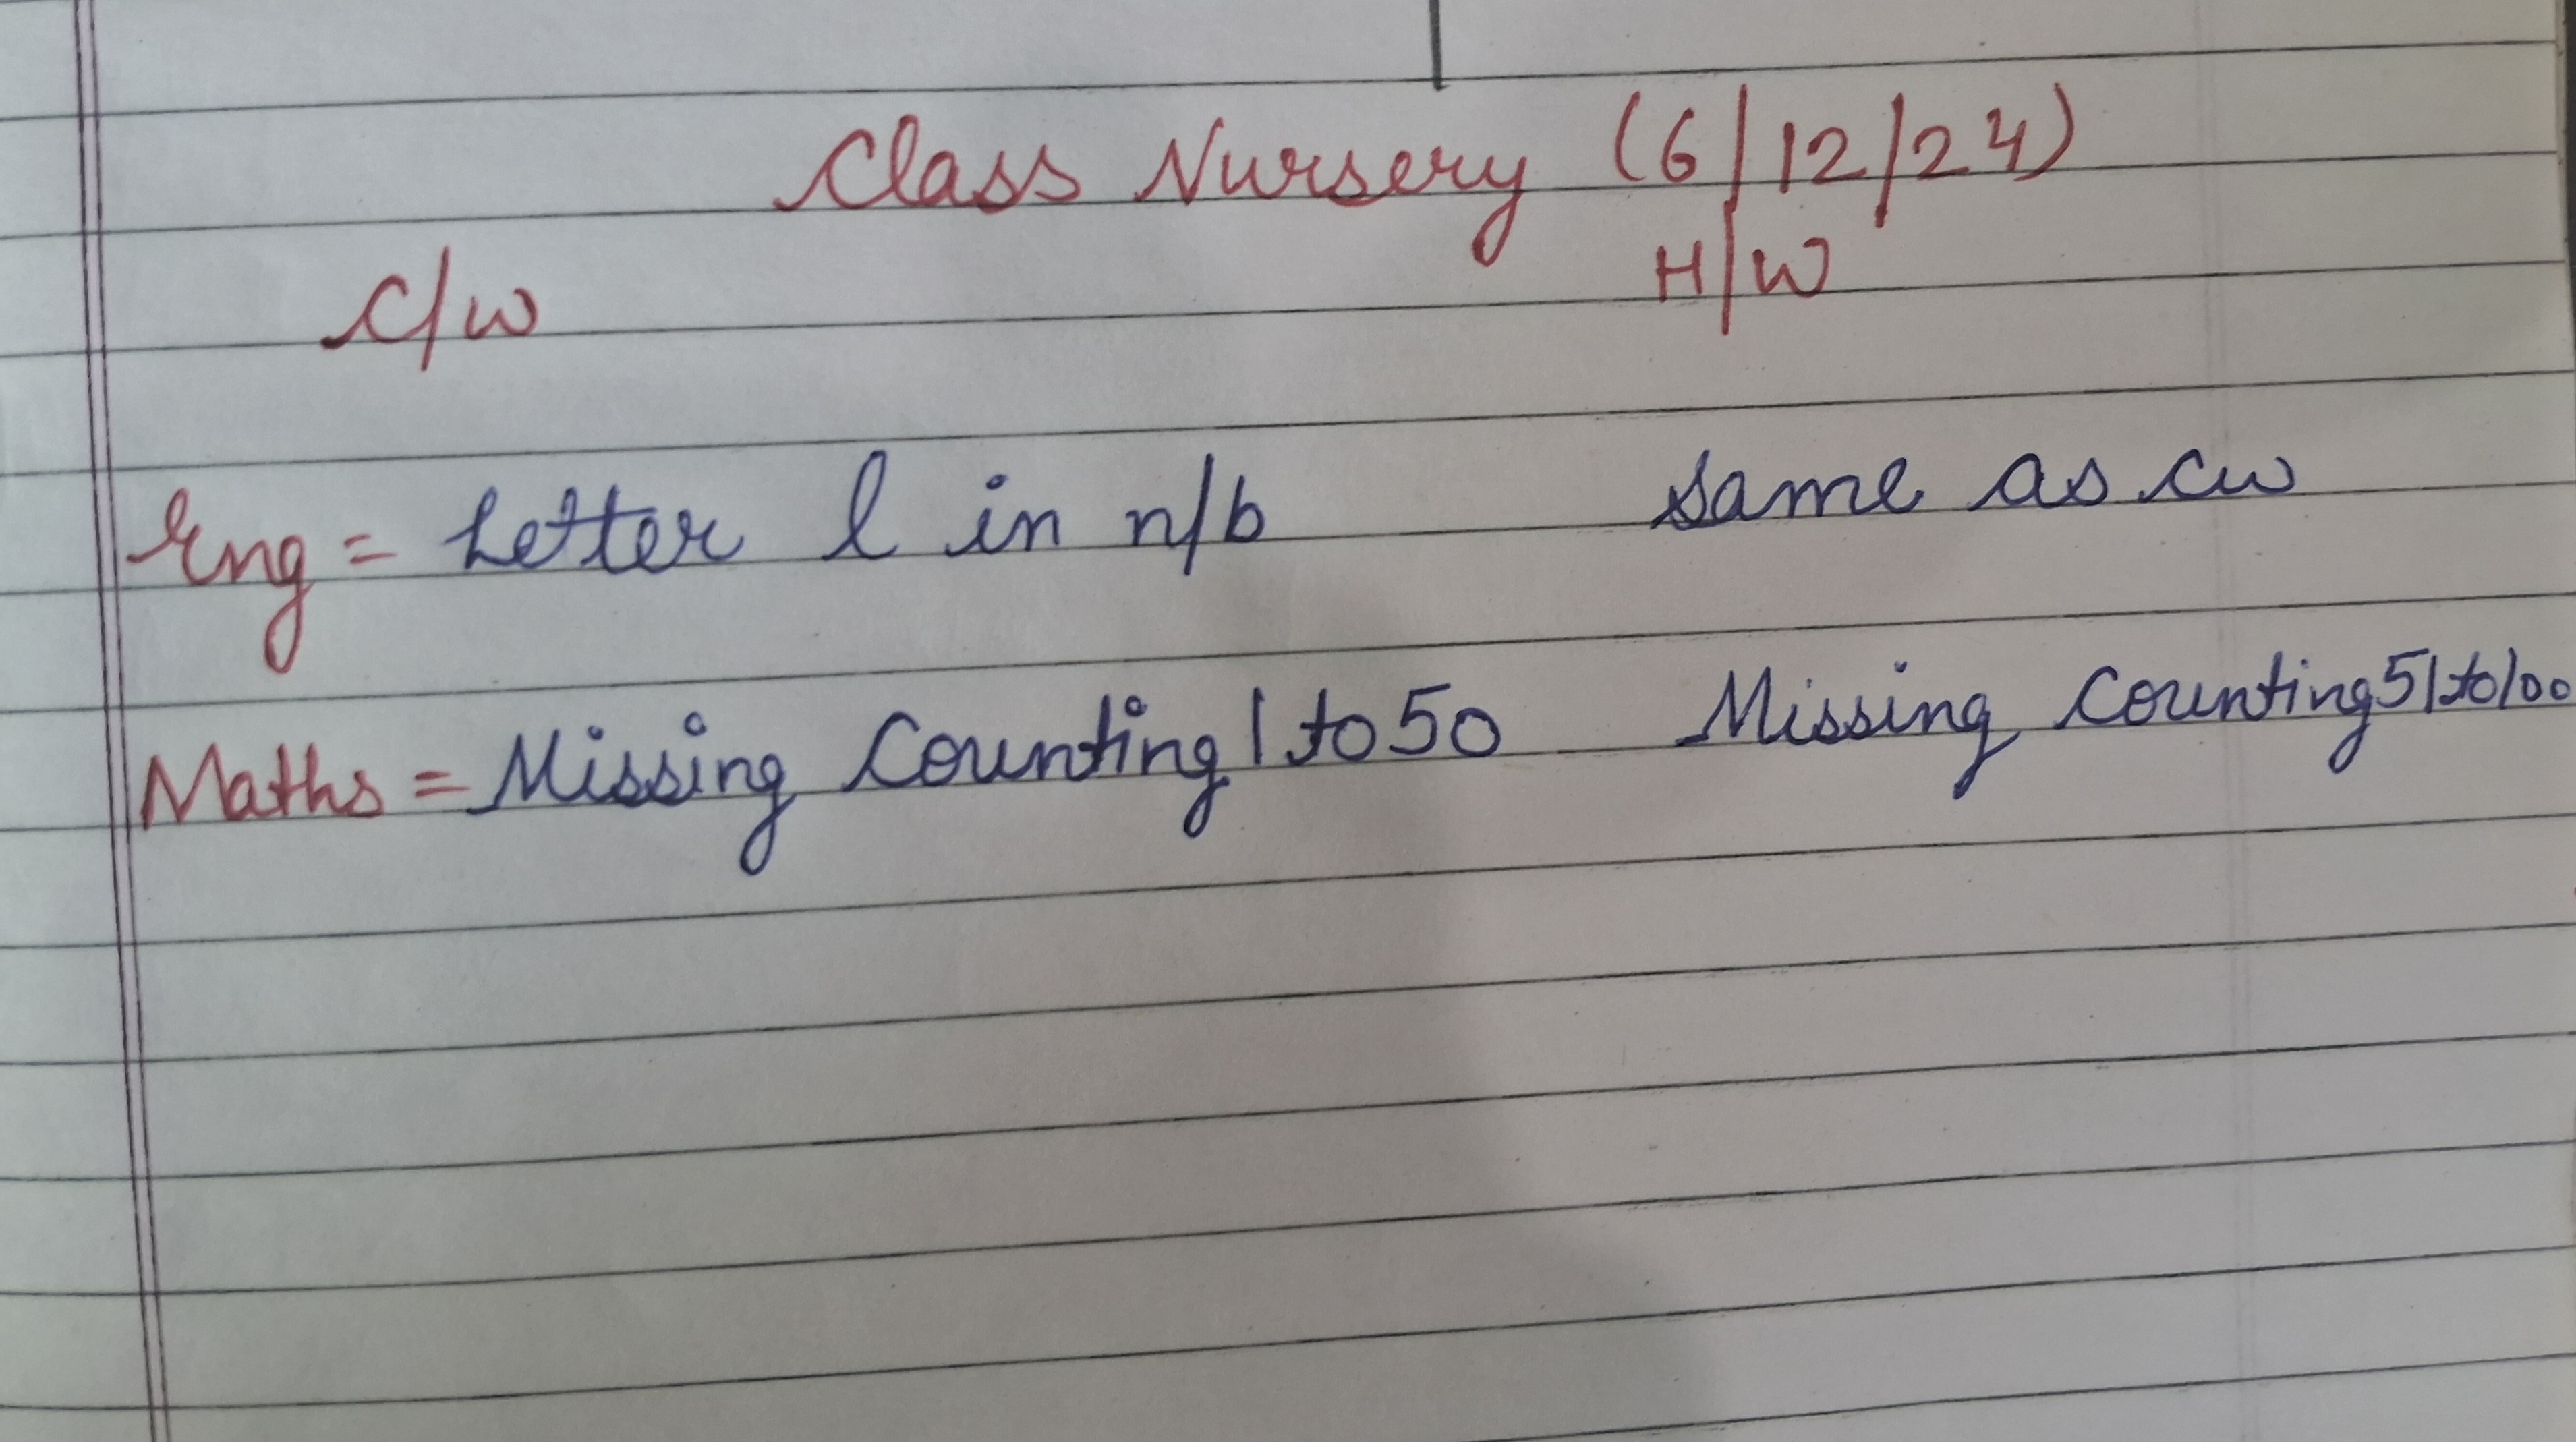 Class Nursery (6/12/24)
C/w H/W
Eng = Letter l in n/b same as cw
Maths = Missing Counting 1 to 50 Missing Counting 51 to 100